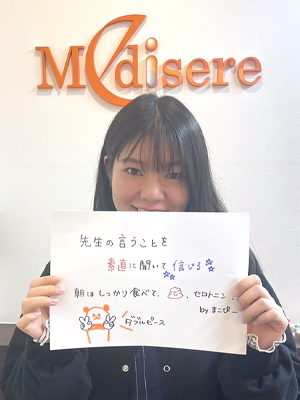 Medisere
先生の言うことを
素直に聞いて信じる
朝はしっかり食べて、 、セロトニン
by まこぴ
ダブルピース